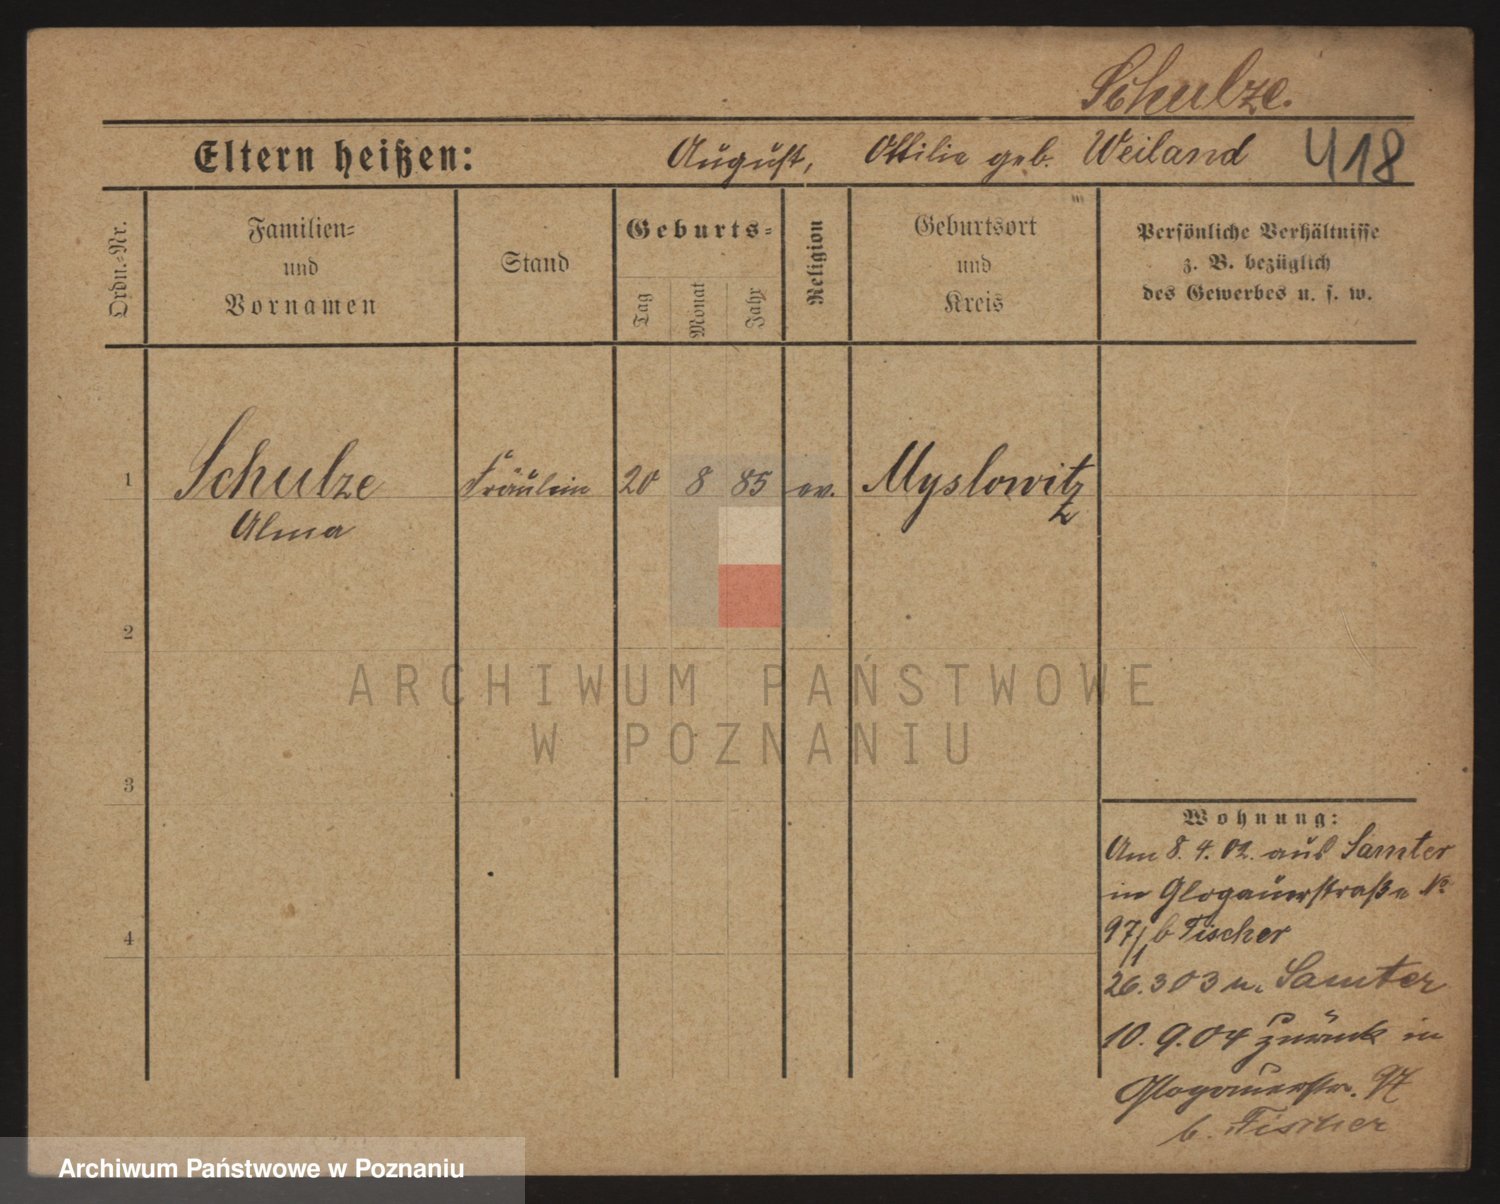 Schulze.
Eltern heißen: August, Ottilie geb. Weiland 418
Ordn.-Nr.
Familien-
und
Vornamen
Stand
Geburts-
Tag
Monat
Jahr
Religion
Geburtsort
und
Kreis
Persönliche Verhältnisse
z. B. bezüglich
des Gewerbes u. s. w.
1 Schulze Fräulein 20 8 85 ev. Myslowitz
Alma
2
ARCHIWUM PAŃSTWOWE
W POZNANIU
3
Wohnung:
Am 8.4.02. aus Samter
in Glogauerstraße No
97/1 b Fischer
4
26.3 03 n. Samter
10.9.04 zurück in
Glogauerstr. 97
b. Fischer
Archiwum Państwowe w Poznaniu